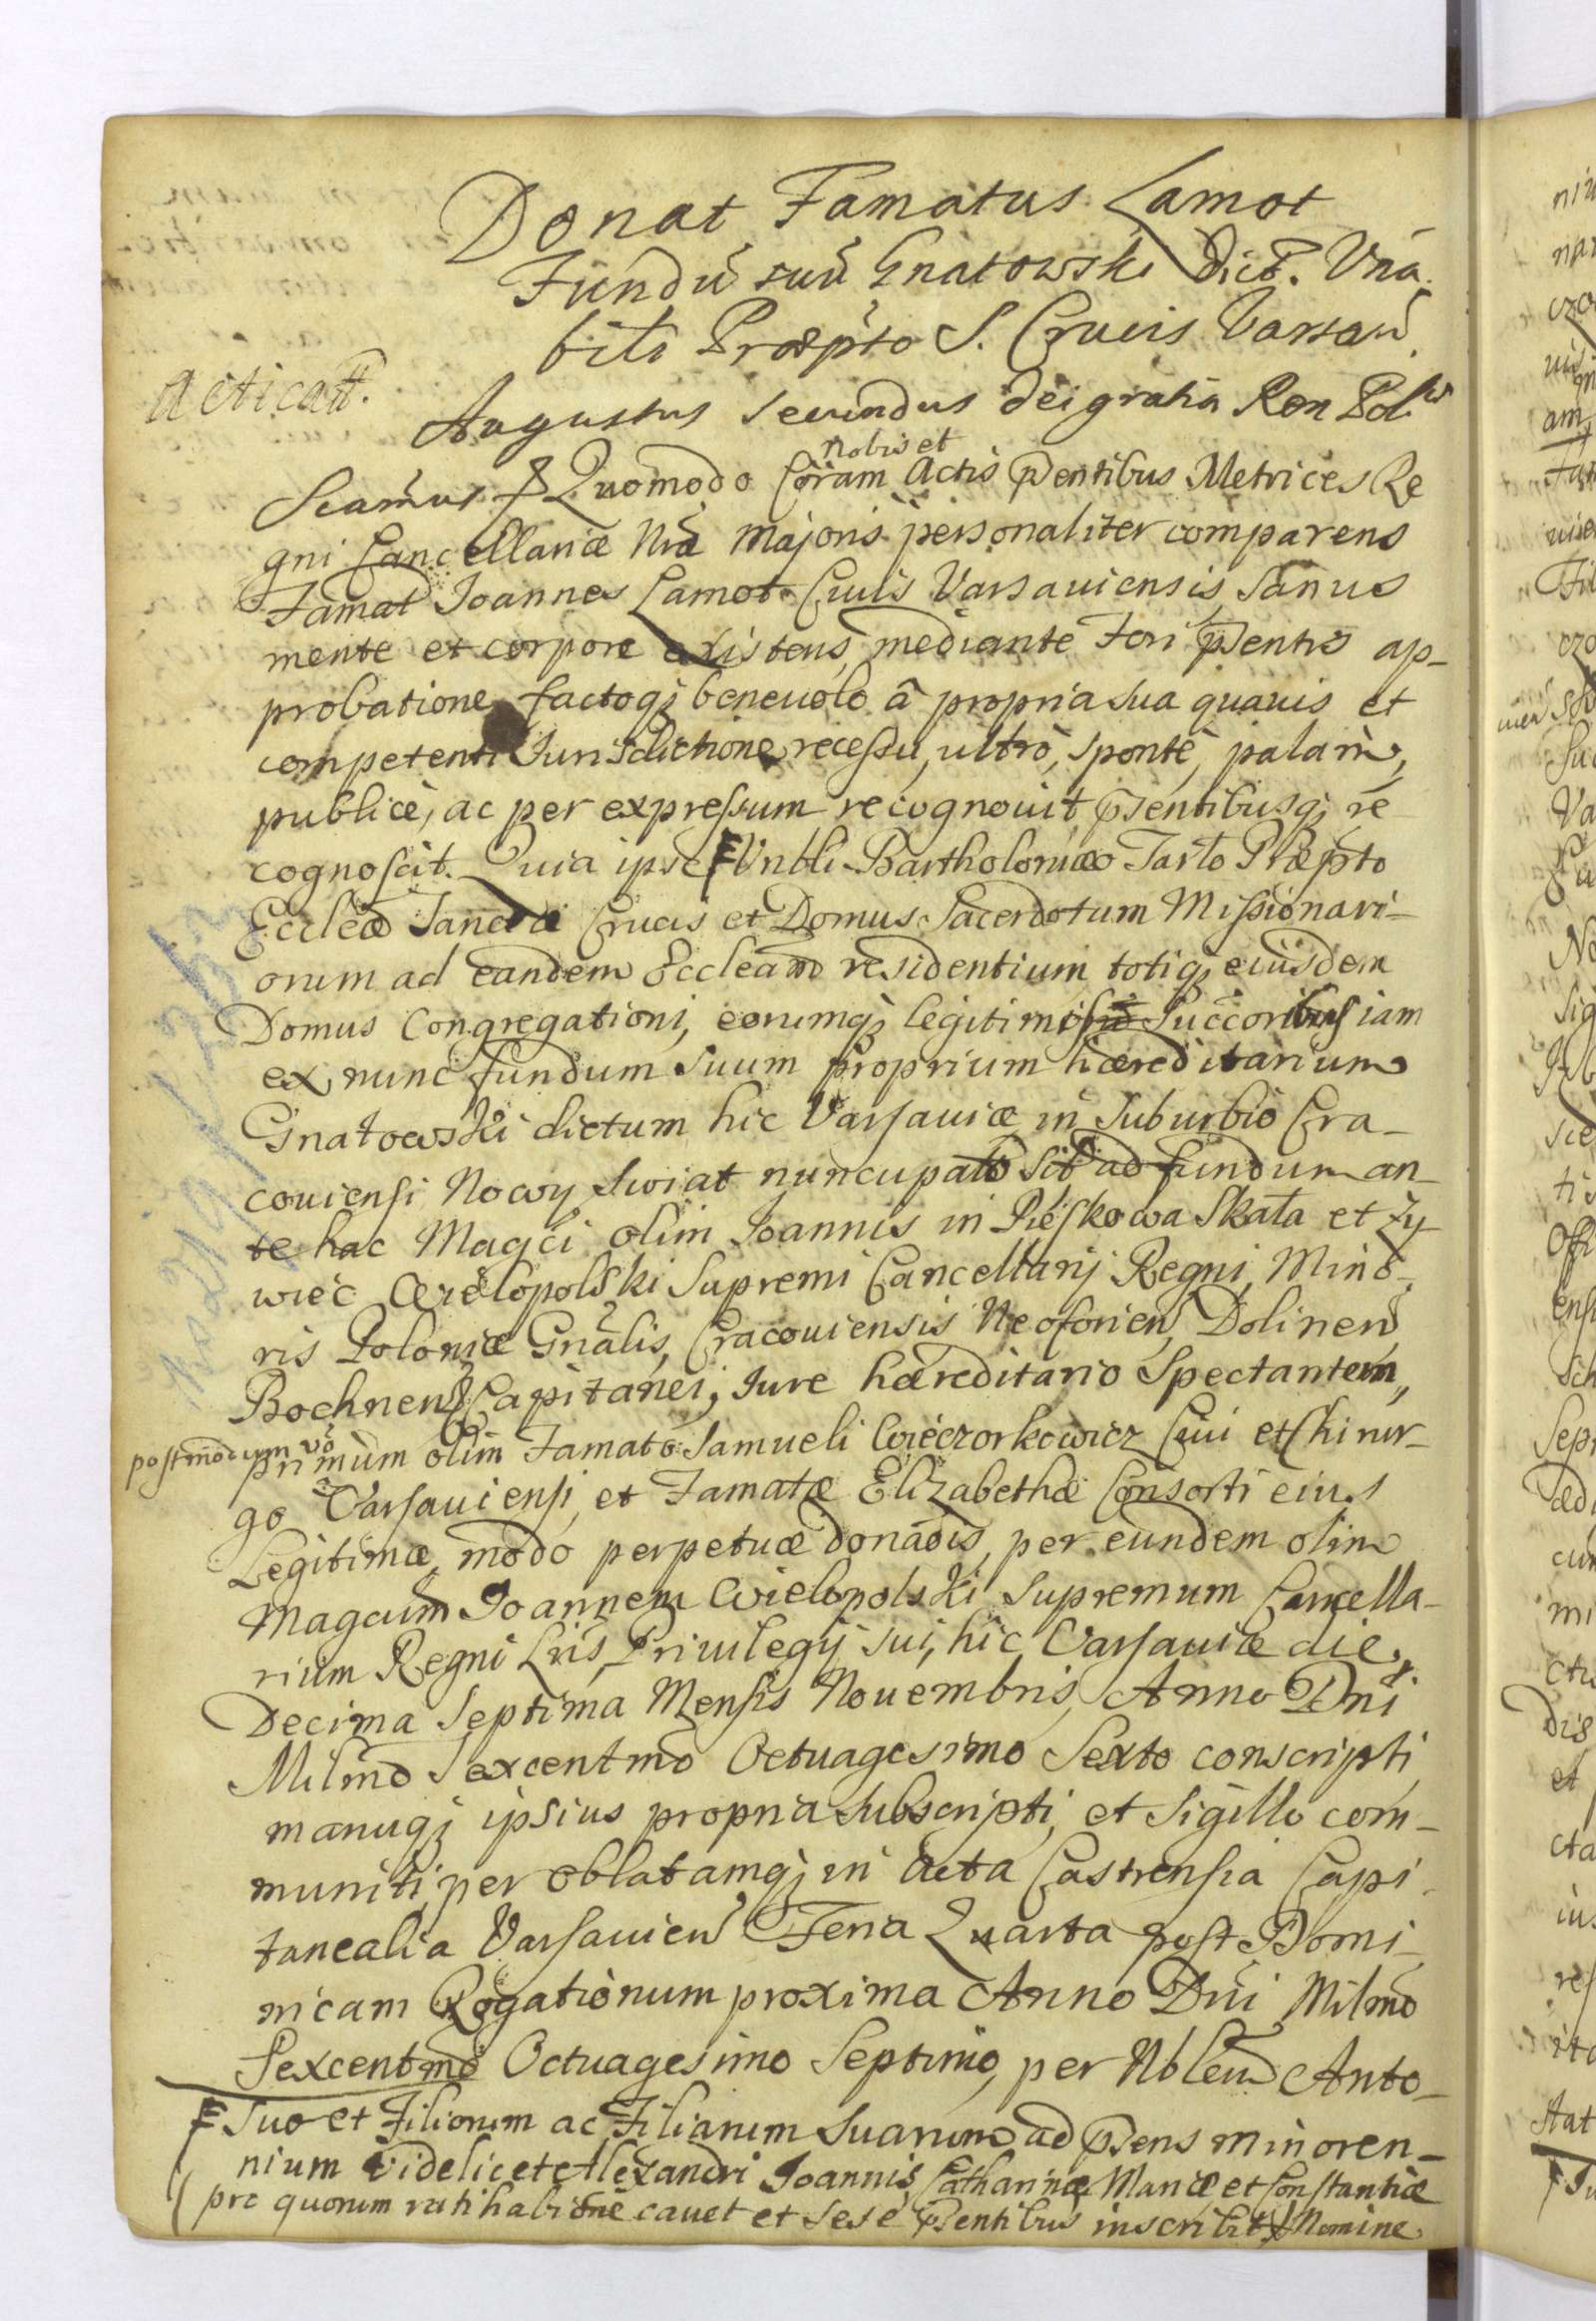 Donat Famatus Lamot
Fundū suū Gnatowski Dict. Vña
bili Præpto S. Crucis Varsaw̃
Acticatt.
Augustus Secundus Dei gratia Rex Pol
nobis et
Scamus Quomodo Coram Actis p̃sentibus Metrices Re
gni Cancellariæ Nræ Majoris personaliter comparens
Famat Joannes Lamot Civis Varsauiensis, Sanus
mente et corpore existens, mediante Fori p̃sentis ap-
probatione factoq; beneuolo â propria sua quauis et
competenti Jurisdictione recessu, ultrò, spontè, palàm,
publicè, ac per expressum recognouit p̃sentibusq; re
cognoscit. Quia ipse Vnbli Bartholomæo Tarło Præpto
Eccleæ Sanctæ Crucis et Domus Sacerdotum Missionari-
orum ad eandem Eccleam residentium totiq; eiusdem
Domus Congregationi, eorumq; legitimis Succoribus iam
ex nunc fundum suum proprium hæreditarium
Gnatowski dictum hic Varsauiæ in Suburbio Cra-
couiensi Nowy Swiat nuncupato sit ad fundum an-
te hac Magci olim Joannis in Pieskowa Skała et Zy
wiec Wielopolski Supremi Cancellarij Regni, Mino-
ris Poloniæ Gnãlis, Cracouiensis Neoforien, Dolinen
Bochnen Capitanei, Jure hæreditario Spectantem,
postmodum vo
primum olim Famato Samueli Wieczorkowicz Ciui et Chirur-
go Varsauiensi, et Famatæ Elizabethæ Consorti eius
Legitimæ, modo perpetuæ donãois, per eundem olim
Magcum Joannem Wielopolski Supremum Cancella-
rium Regni Lris Priuilegij sui, hic Varsauiæ die
Decima Septima Mensis Nouembris, Anno Dni
Milmo Sexcentmo Octuagesimo Sexto conscripti,
manuq; ipsius propria subscripti, et Sigillo com-
muniti, per oblatamq; in Acta Castrensia Capi-
tanealia Varsauien Feria Quarta post Domi-
nicam Rogationum proxima Anno Dni Milmo
Sexcentmo Octuagesimo Septimo, per Nblem Anto-
Suo et Filiorum ac Filiarum Suarum ad p̃sens minoren-
nium videlicet Alexandri Joannis, Catharinæ Mariæ et Constantiæ
pro quorum ratihabitione cauet et sese p̃sentibus inscribit Nomine